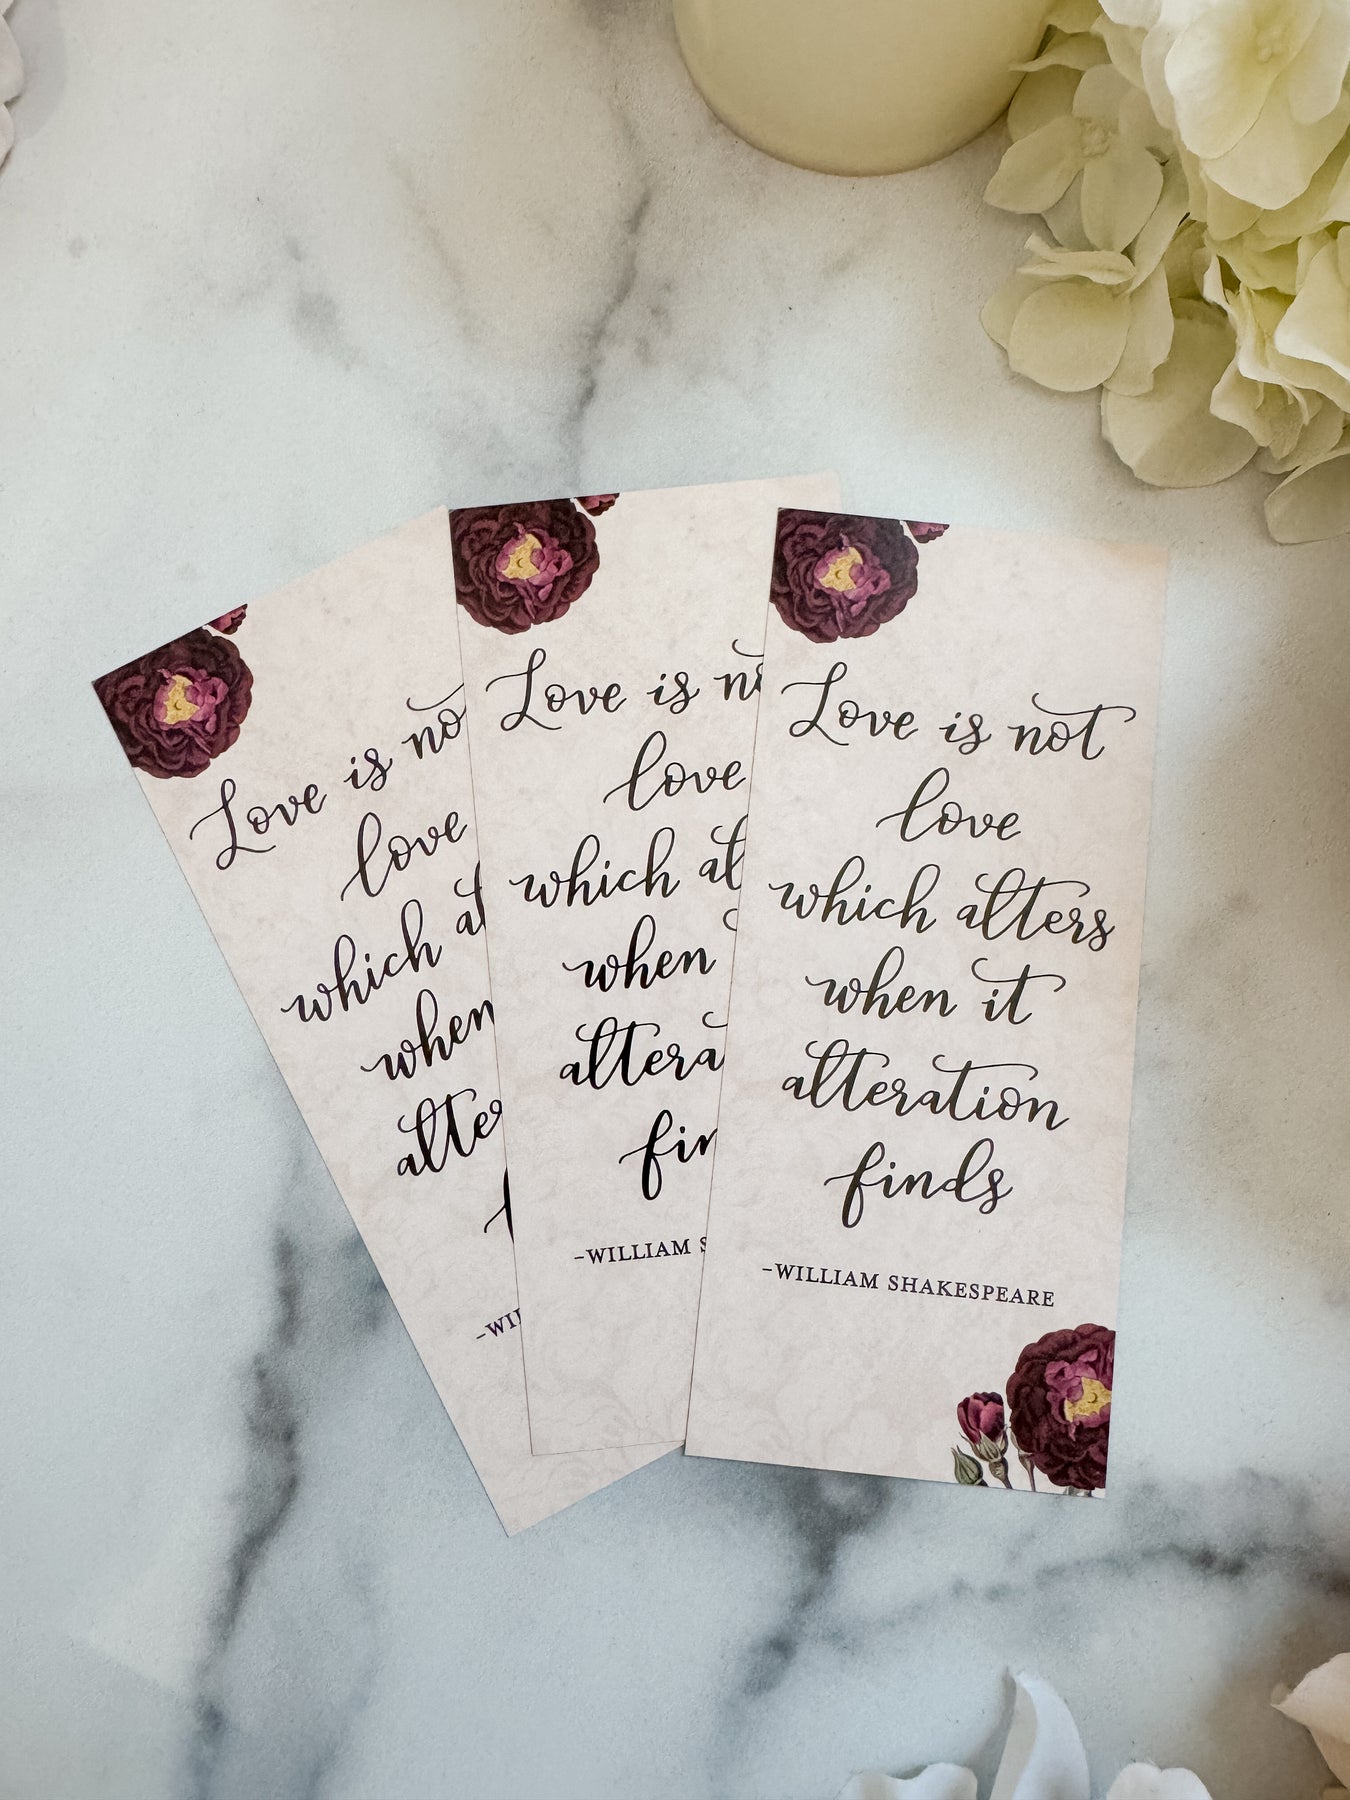 Love is no
love
which al
when
alte
-WIL
Love is no
love
which al
when
altera
fin
-WILLIAM S
Love is not
love
which alters
when it
alteration
finds
-WILLIAM SHAKESPEARE